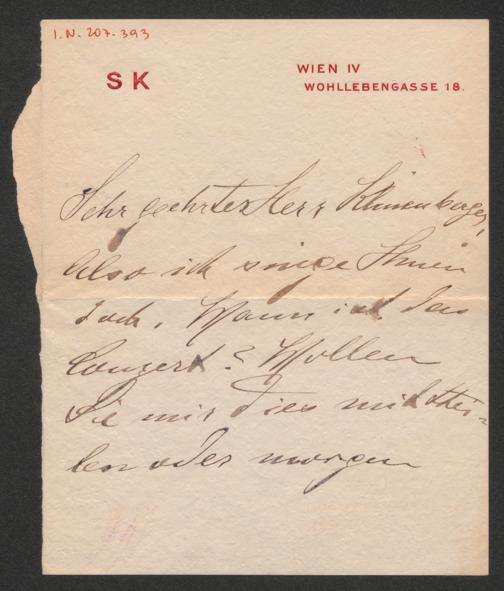 I.N. 207.393
SK
WIEN IV
WOHLLEBENGASSE 18.
Sehr geehrter Herr
also ich singe Ihnen
doch. Wann ist das
Conzert? Wollen
Sie mir dies mitthei-
len oder morgen